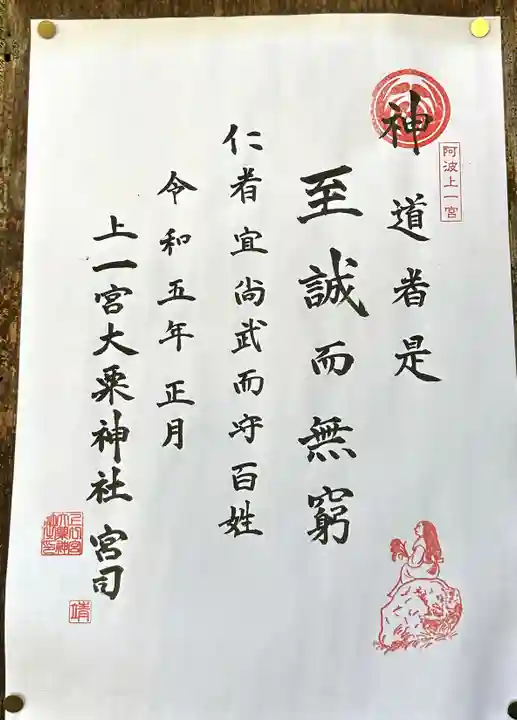 阿波上一宮
神道者是
至誠而無窮
仁者宜尚武而守百姓
令和五年正月
上一宮大粟神社宮司